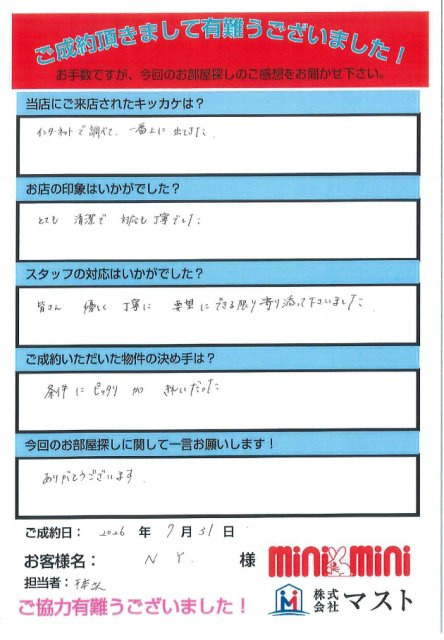 ご成約頂きまして有難うございました！
お手数ですが、今回のお部屋探しのご感想をお聞かせ下さい。
当店にご来店されたキッカケは？
インターネットで調べて、一番上に出てきた。
お店の印象はいかがでした？
とても 清潔で 対応も丁寧でした。
スタッフの対応はいかがでした？
皆さん 優しく 丁寧に 要望に できる限り寄り添って下さいました。
ご成約いただいた物件の決め手は？
条件に ピッタリ かつ きれいだった
今回のお部屋探しに関して一言お願いします！
ありがとうございます
ご成約日： 2026 年 7 月 31 日
お客様名： N Y. 様
mini mini
担当者：
株式会社 マスト
ご協力有難うございました！